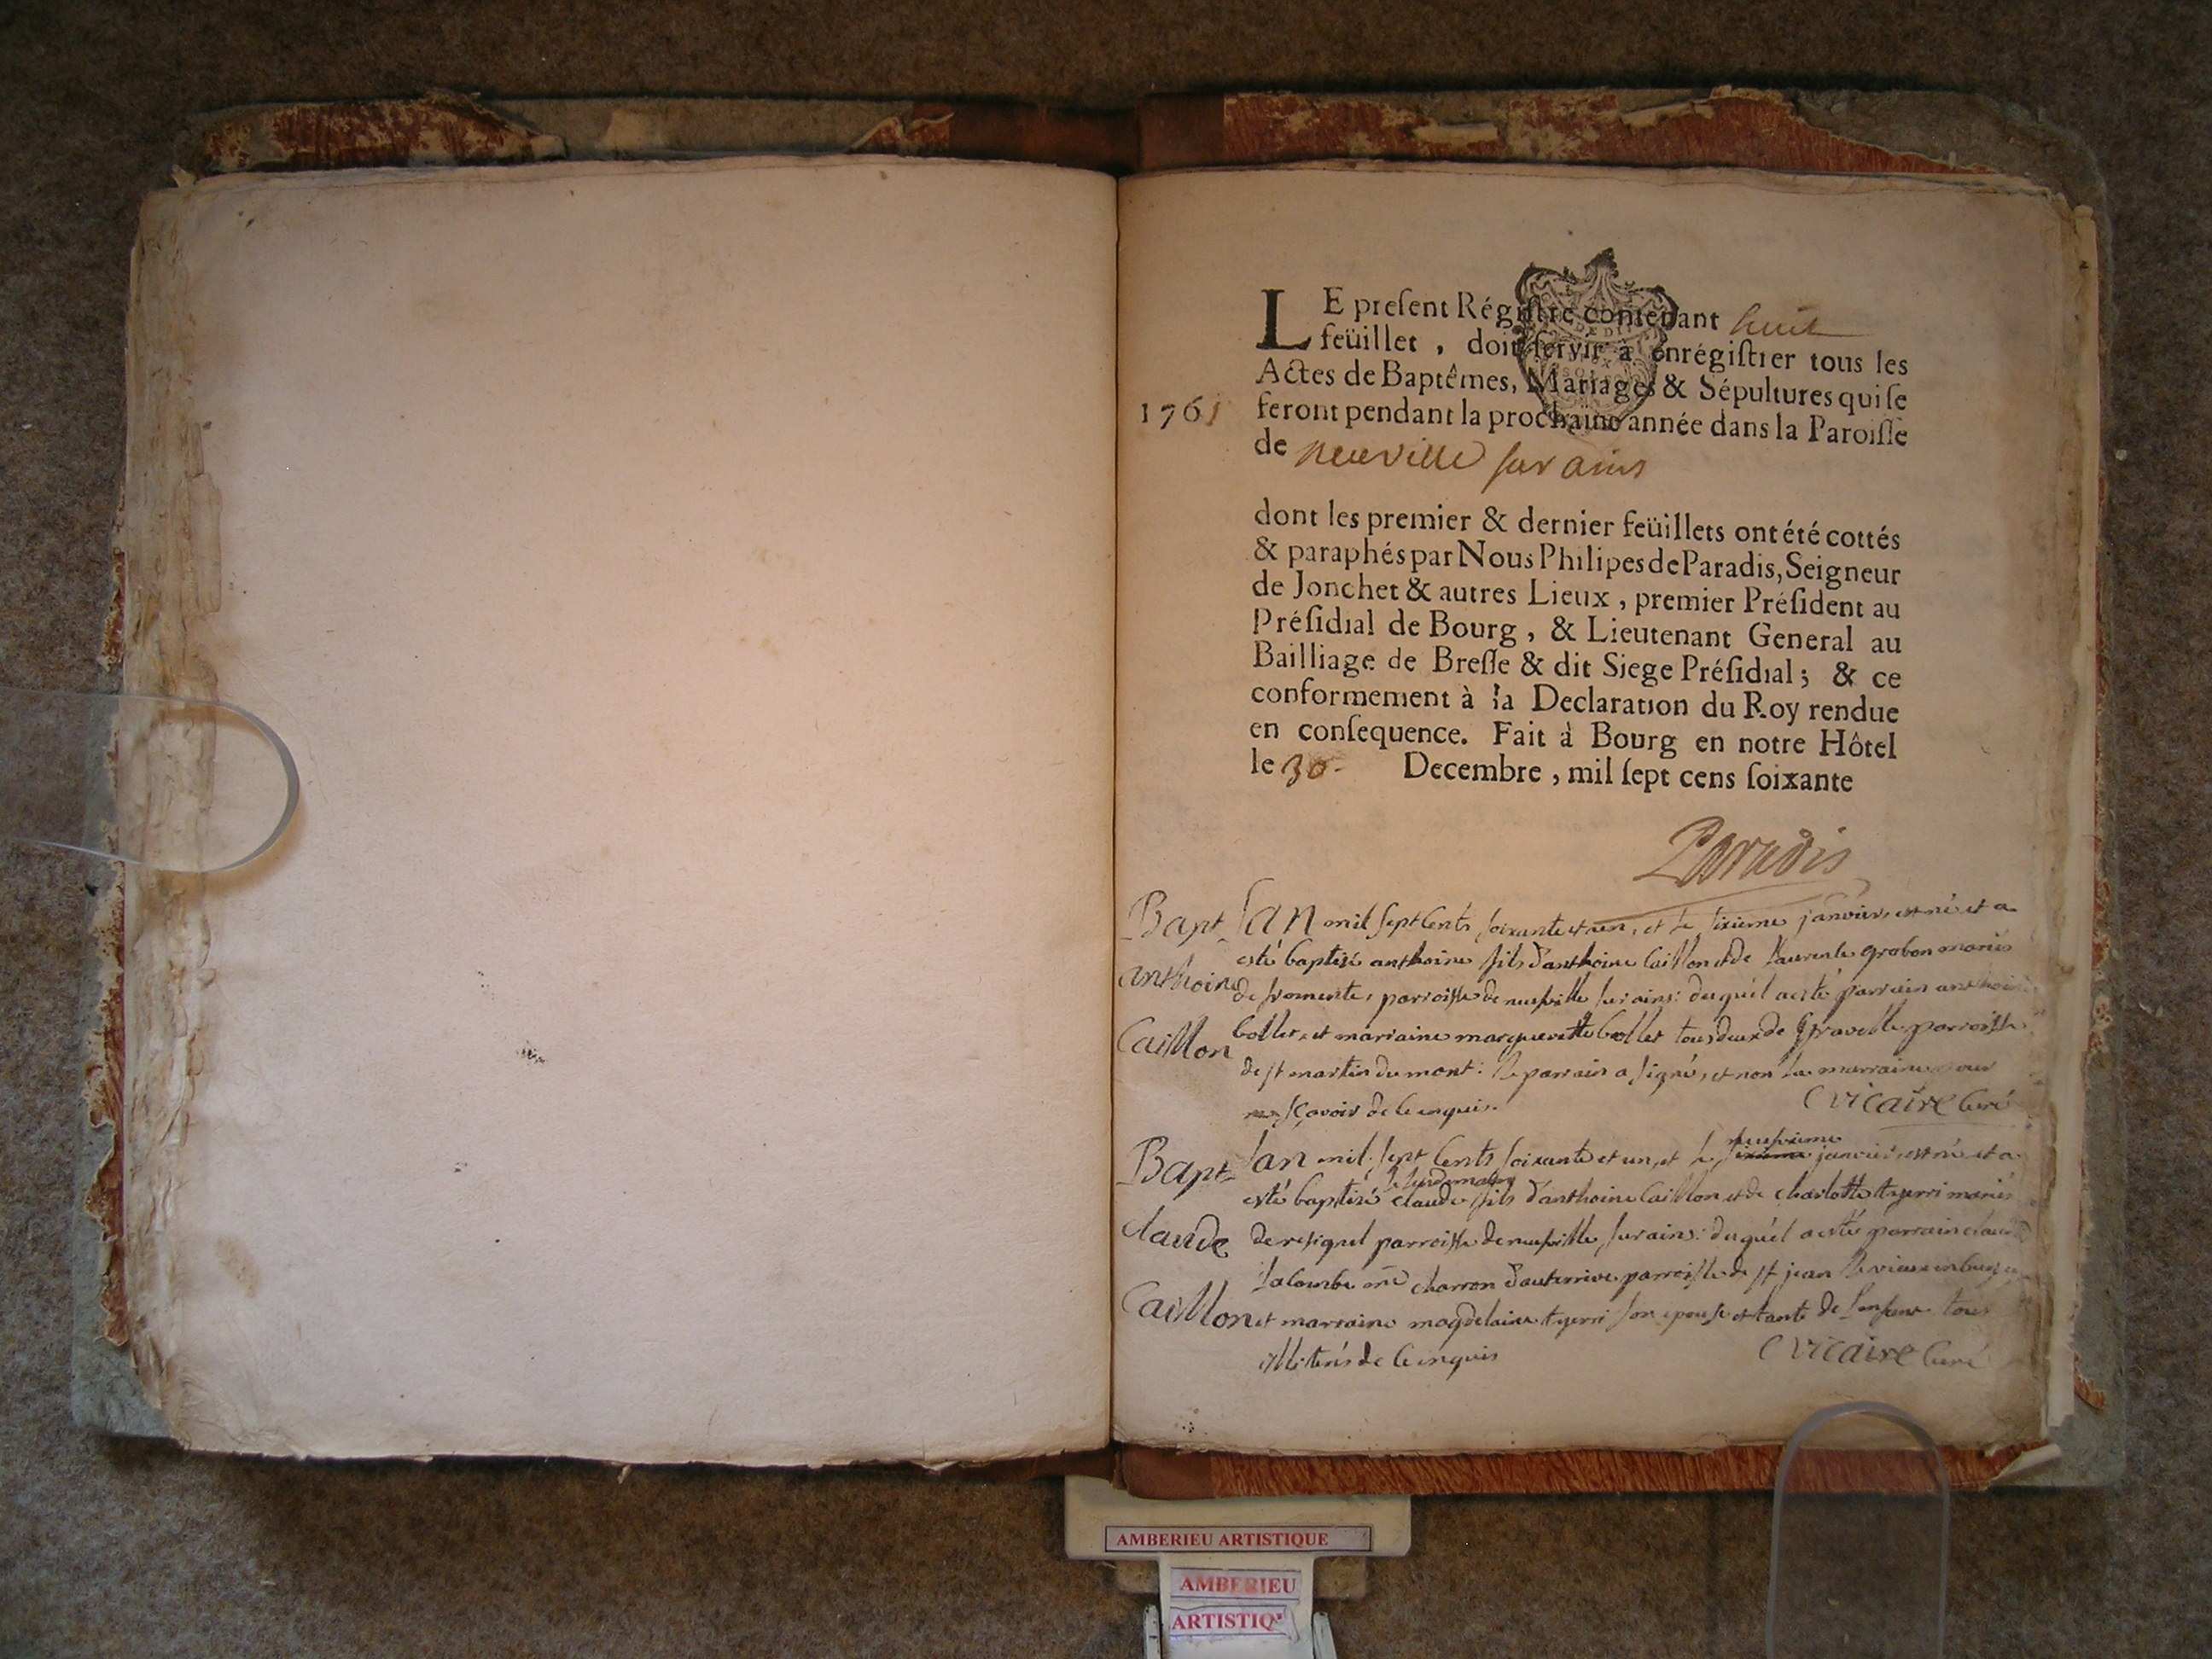 LE present Régistre contenant huit
feüillet, doit servir à enrégistrer tous les
Actes de Baptêmes, Mariages & Sépultures qui se
1761 feront pendant la prochaine année dans la Paroisse
de neuville sur ains
dont les premier & dernier feüillets ont été cottés
& paraphés par Nous Philipes de Paradis, Seigneur
de Jonchet & autres Lieux, premier Président au
Présidial de Bourg, & Lieutenant General au
Bailliage de Bresse & dit Siege Présidial; & ce
conformement à la Declaration du Roy rendue
en consequence. Fait à Bourg en notre Hôtel
le 30. Decembre, mil sept cens soixante
Paradis
Bapt. lan mil sept cents soixante et un, et le sixieme janvier, est né et a
esté baptisé anthoine fils d'anthoine Caillon et de Laurente grabon mariés
anthoine de fromente, parroisse de neufville sur ains: duquél a esté parrain anthoine
Caillon bollet, et marraine marguerette bollet tous deux de gravelle parroisse
de st martin du mont: le parrain a signé, et non la marraine pour
ne sçavoir de ce enquis. C vicaire Curé
Bapt. lan mil sept cents soixante et un, et le sixieme neufvieme janvier, est né et a
esté baptisé le lendemain claude fils d'anthoine Caillon et de charlotte tyerri mariés
claude de resignel parroisse de neufville sur ains: duquél a esté parrain claude
lacombe me charron d'auterrive parroisse de st jean le vieux en bugey
Caillon et marraine magdelaine tyerri son epouse et tante de l'enfant tous
illiterés de ce enquis C vicaire Curé
AMBERIEU ARTISTIQUE
AMBERIEU
ARTISTIQ